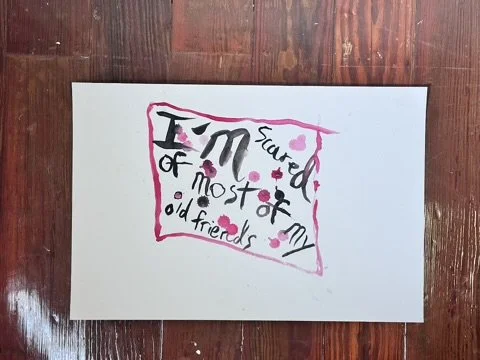 I'M scared
of most of my
old friends